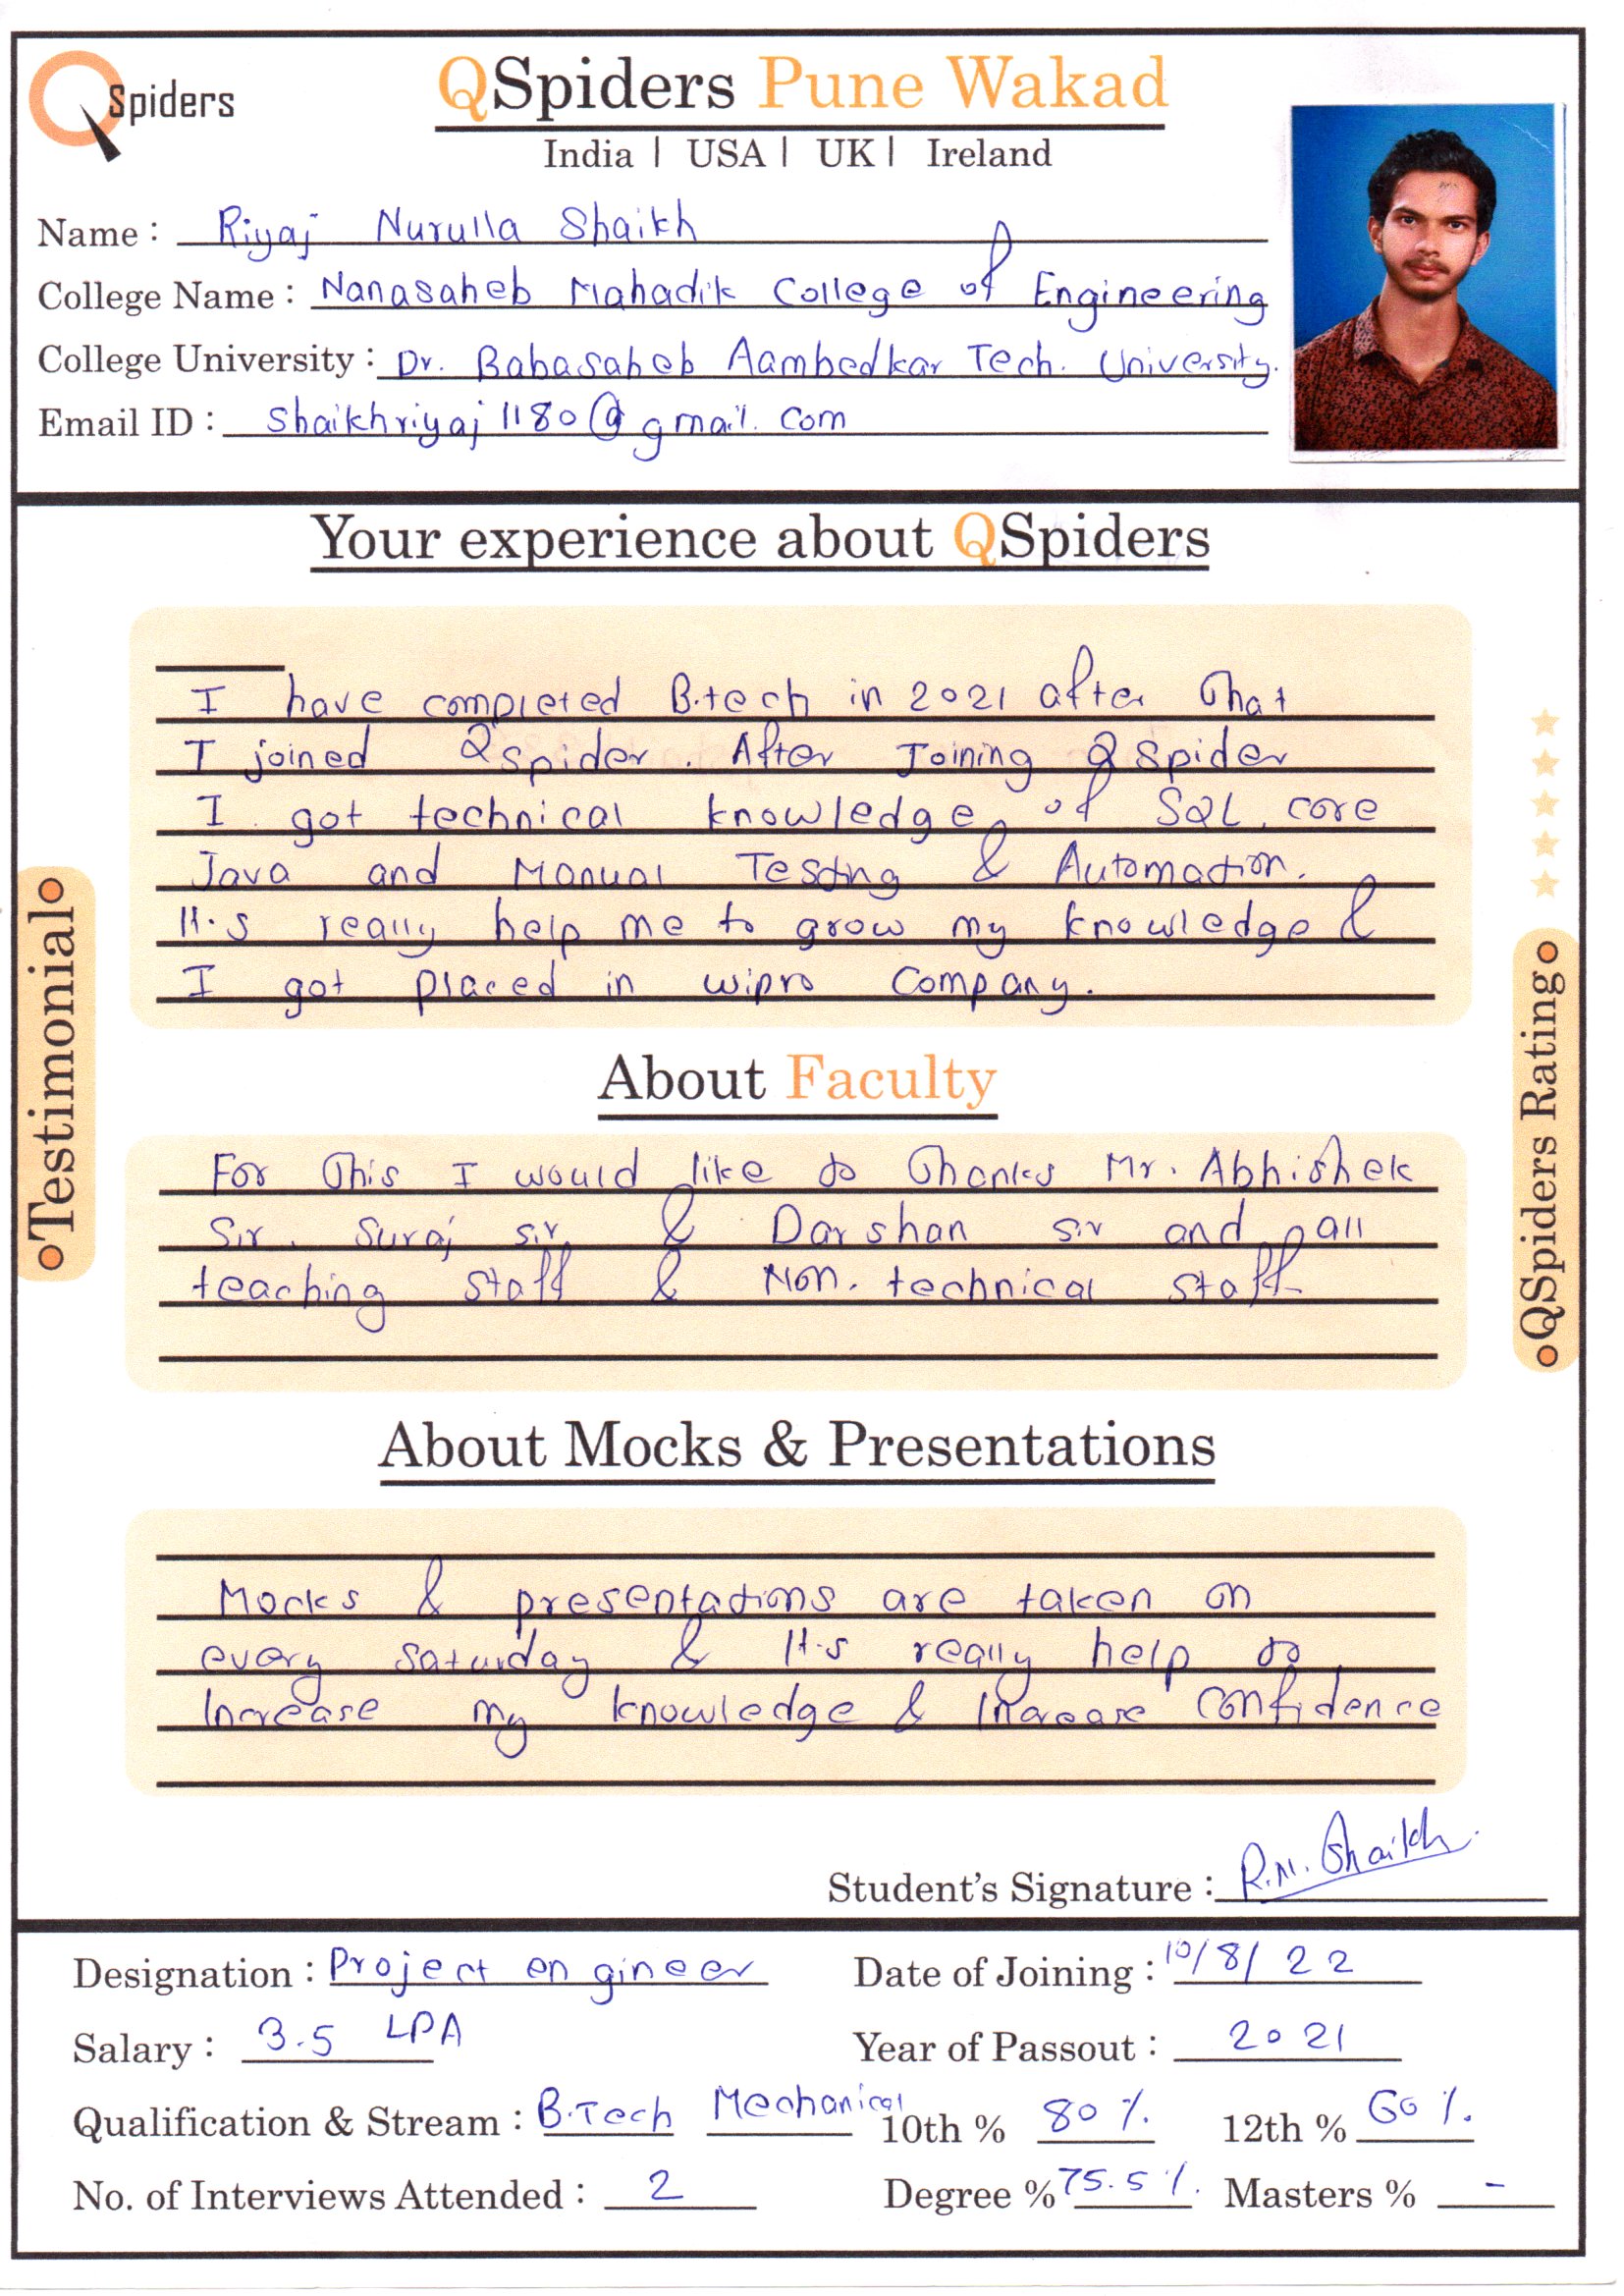 QSpiders
QSpiders Pune Wakad
India | USA | UK | Ireland
Name : Riyaj Nurulla Shaikh
College Name : Nanasaheb Mahadik College of Engineering
College University : Dr. Babasaheb Aambedkar Tech. University.
Email ID : shaikhriyaj1180@gmail.com
Your experience about QSpiders
I have completed B.tech in 2021 after that
I joined Qspider. After Joining QSpider
I got technical knowledge of SQL, core
Java and Manual Testing & Automation.
It's really help me to grow my knowledge &
I got placed in wipro company.
Testimonial
QSpiders Rating
About Faculty
For this I would like to thanks Mr. Abhishek
Sir. Suraj sir, & Darshan sir and all
teaching staff & Non. technical staff
About Mocks & Presentations
Mocks & presentations are taken on
every saturday & It's really help to
Increase my knowledge & Increase confidence
Student's Signature : R.N. Shaikh
Designation : Project engineer Date of Joining : 10/8/22
Salary : 3.5 LPA Year of Passout : 2021
Qualification & Stream : B.Tech Mechanical 10th % 80 %. 12th % 60 %.
No. of Interviews Attended : 2 Degree % 75.5 %. Masters % -